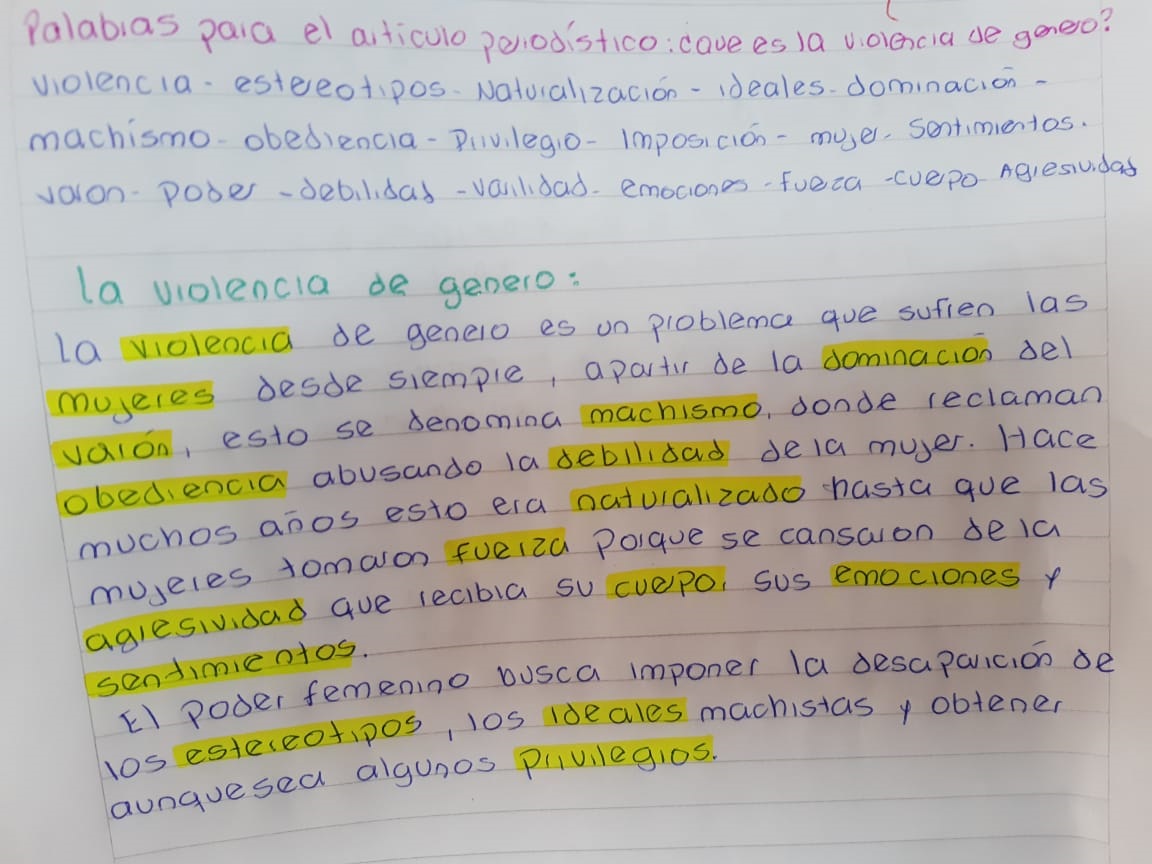 Palabras para el articulo periodístico: ¿que es la violencia de genero?
violencia - estereotipos - Naturalización - ideales - dominación -
machismo - obediencia - Privilegio - Imposición - mujer - sentimientos.
varon - Poder - debilidad - varilidad - emociones - fuerza - cuerpo - Agresividad
la violencia de genero:
La violencia de genero es un problema que sufren las
mujeres desde siempre, apartir de la dominación del
varón, esto se denomina machismo, donde reclaman
obediencia abusando la debilidad de la mujer. Hace
muchos años esto era naturalizado hasta que las
mujeres tomaron fuerza porque se cansaron de la
agresividad que recibia su cuerpo, sus emociones y
sentimientos.
El poder femenino busca imponer la desaparición de
los estereotipos, los ideales machistas y obtener
aunquesea algunos privilegios.